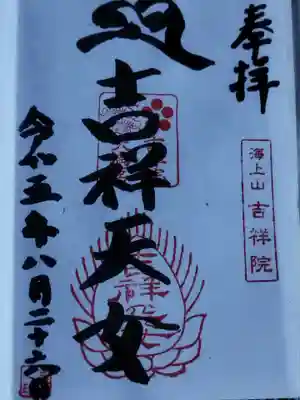 奉拝
海上山 吉祥院
吉祥天女
吉祥殿
令和五年八月二十六日